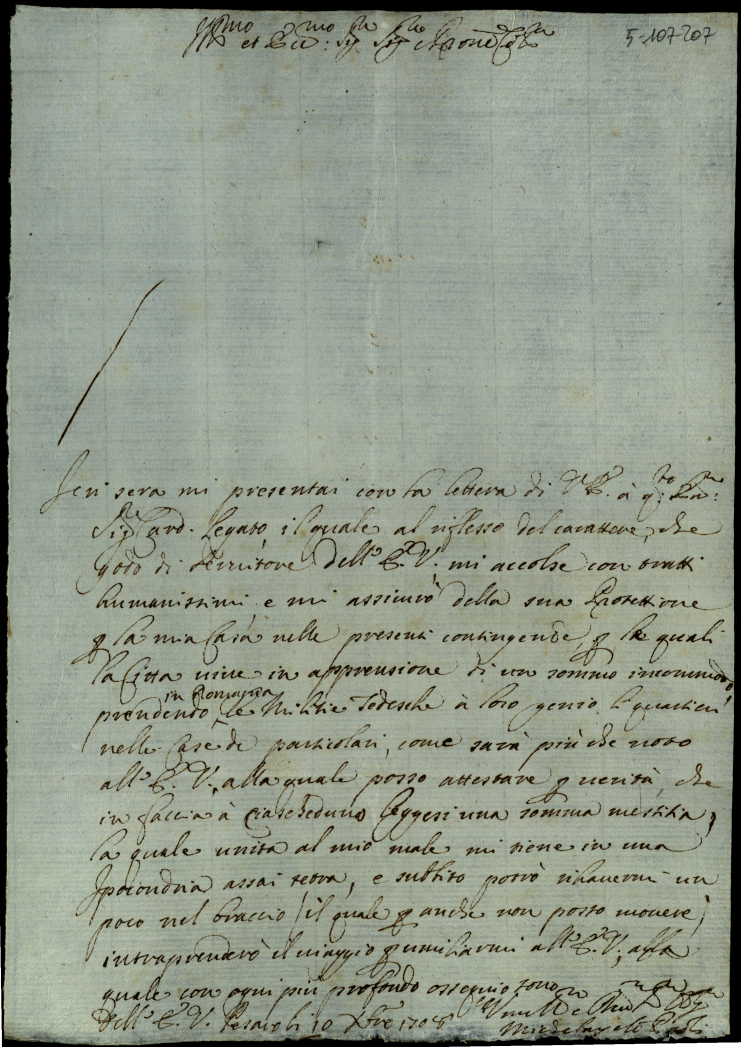 Ill.mo et Ecc.mo Sig.r Sig.r Prone Col.mo
5-107-207
Ieri sera mi presentai con la lettera di V.E. à q.to
Sig.r Card. Legato, il quale al riflesso del carattere, che
godo di Servitore dell'E.V. mi accolse con tratti
humanissimi, e mi assicurò della sua Protettione
p la mia Casa nelle presenti contingenze, p le quali
la Città vive in apprensione di un sommo incommodo,
in Romagna
prendendo le Militie Tedesche à loro genio li quartieri
nelle Case de particolari, come sarà più che noto
all'E.V., alla quale posso attestare p verità, che
in faccia à ciascheduno leggesi una somma mestitia,
la quale unita al mio male mi tiene in una
Ipocondria assai tetra, e subbito potrò rihavermi un
poco nel braccio (il quale p anche non posso movere)
intraprenderò il viaggio p umiliarmi all'E.V., alla
quale con ogni più profondo ossequio sono
Dell'E.V. Pesaro li 10 Xbre 1708